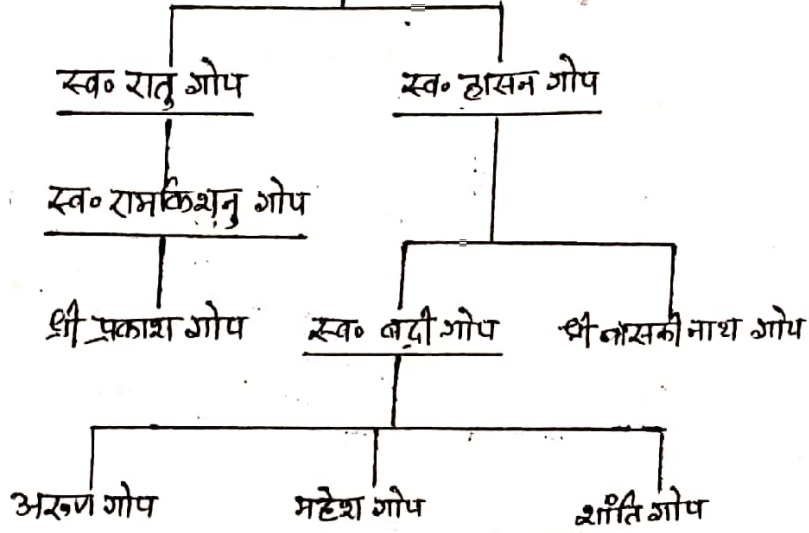 स्व० रातु गोप
स्व० हासन गोप
स्व० रामकिशनु गोप
श्री प्रकाश गोप
स्व० बद्री गोप
श्री बासकी नाथ गोप
अरूण गोप
महेश गोप
शांति गोप